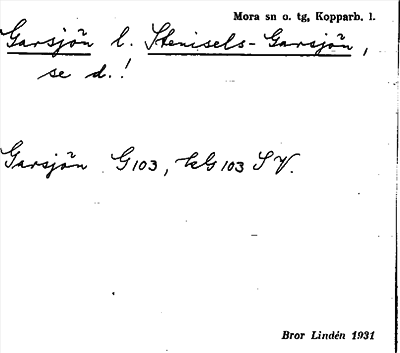 Mora sn o. tg, Kopparb. l.
Garsjön l. Stenisels-Garsjön,
se d.!
Garsjön G103, kG103 SV.
Bror Lindén 1931